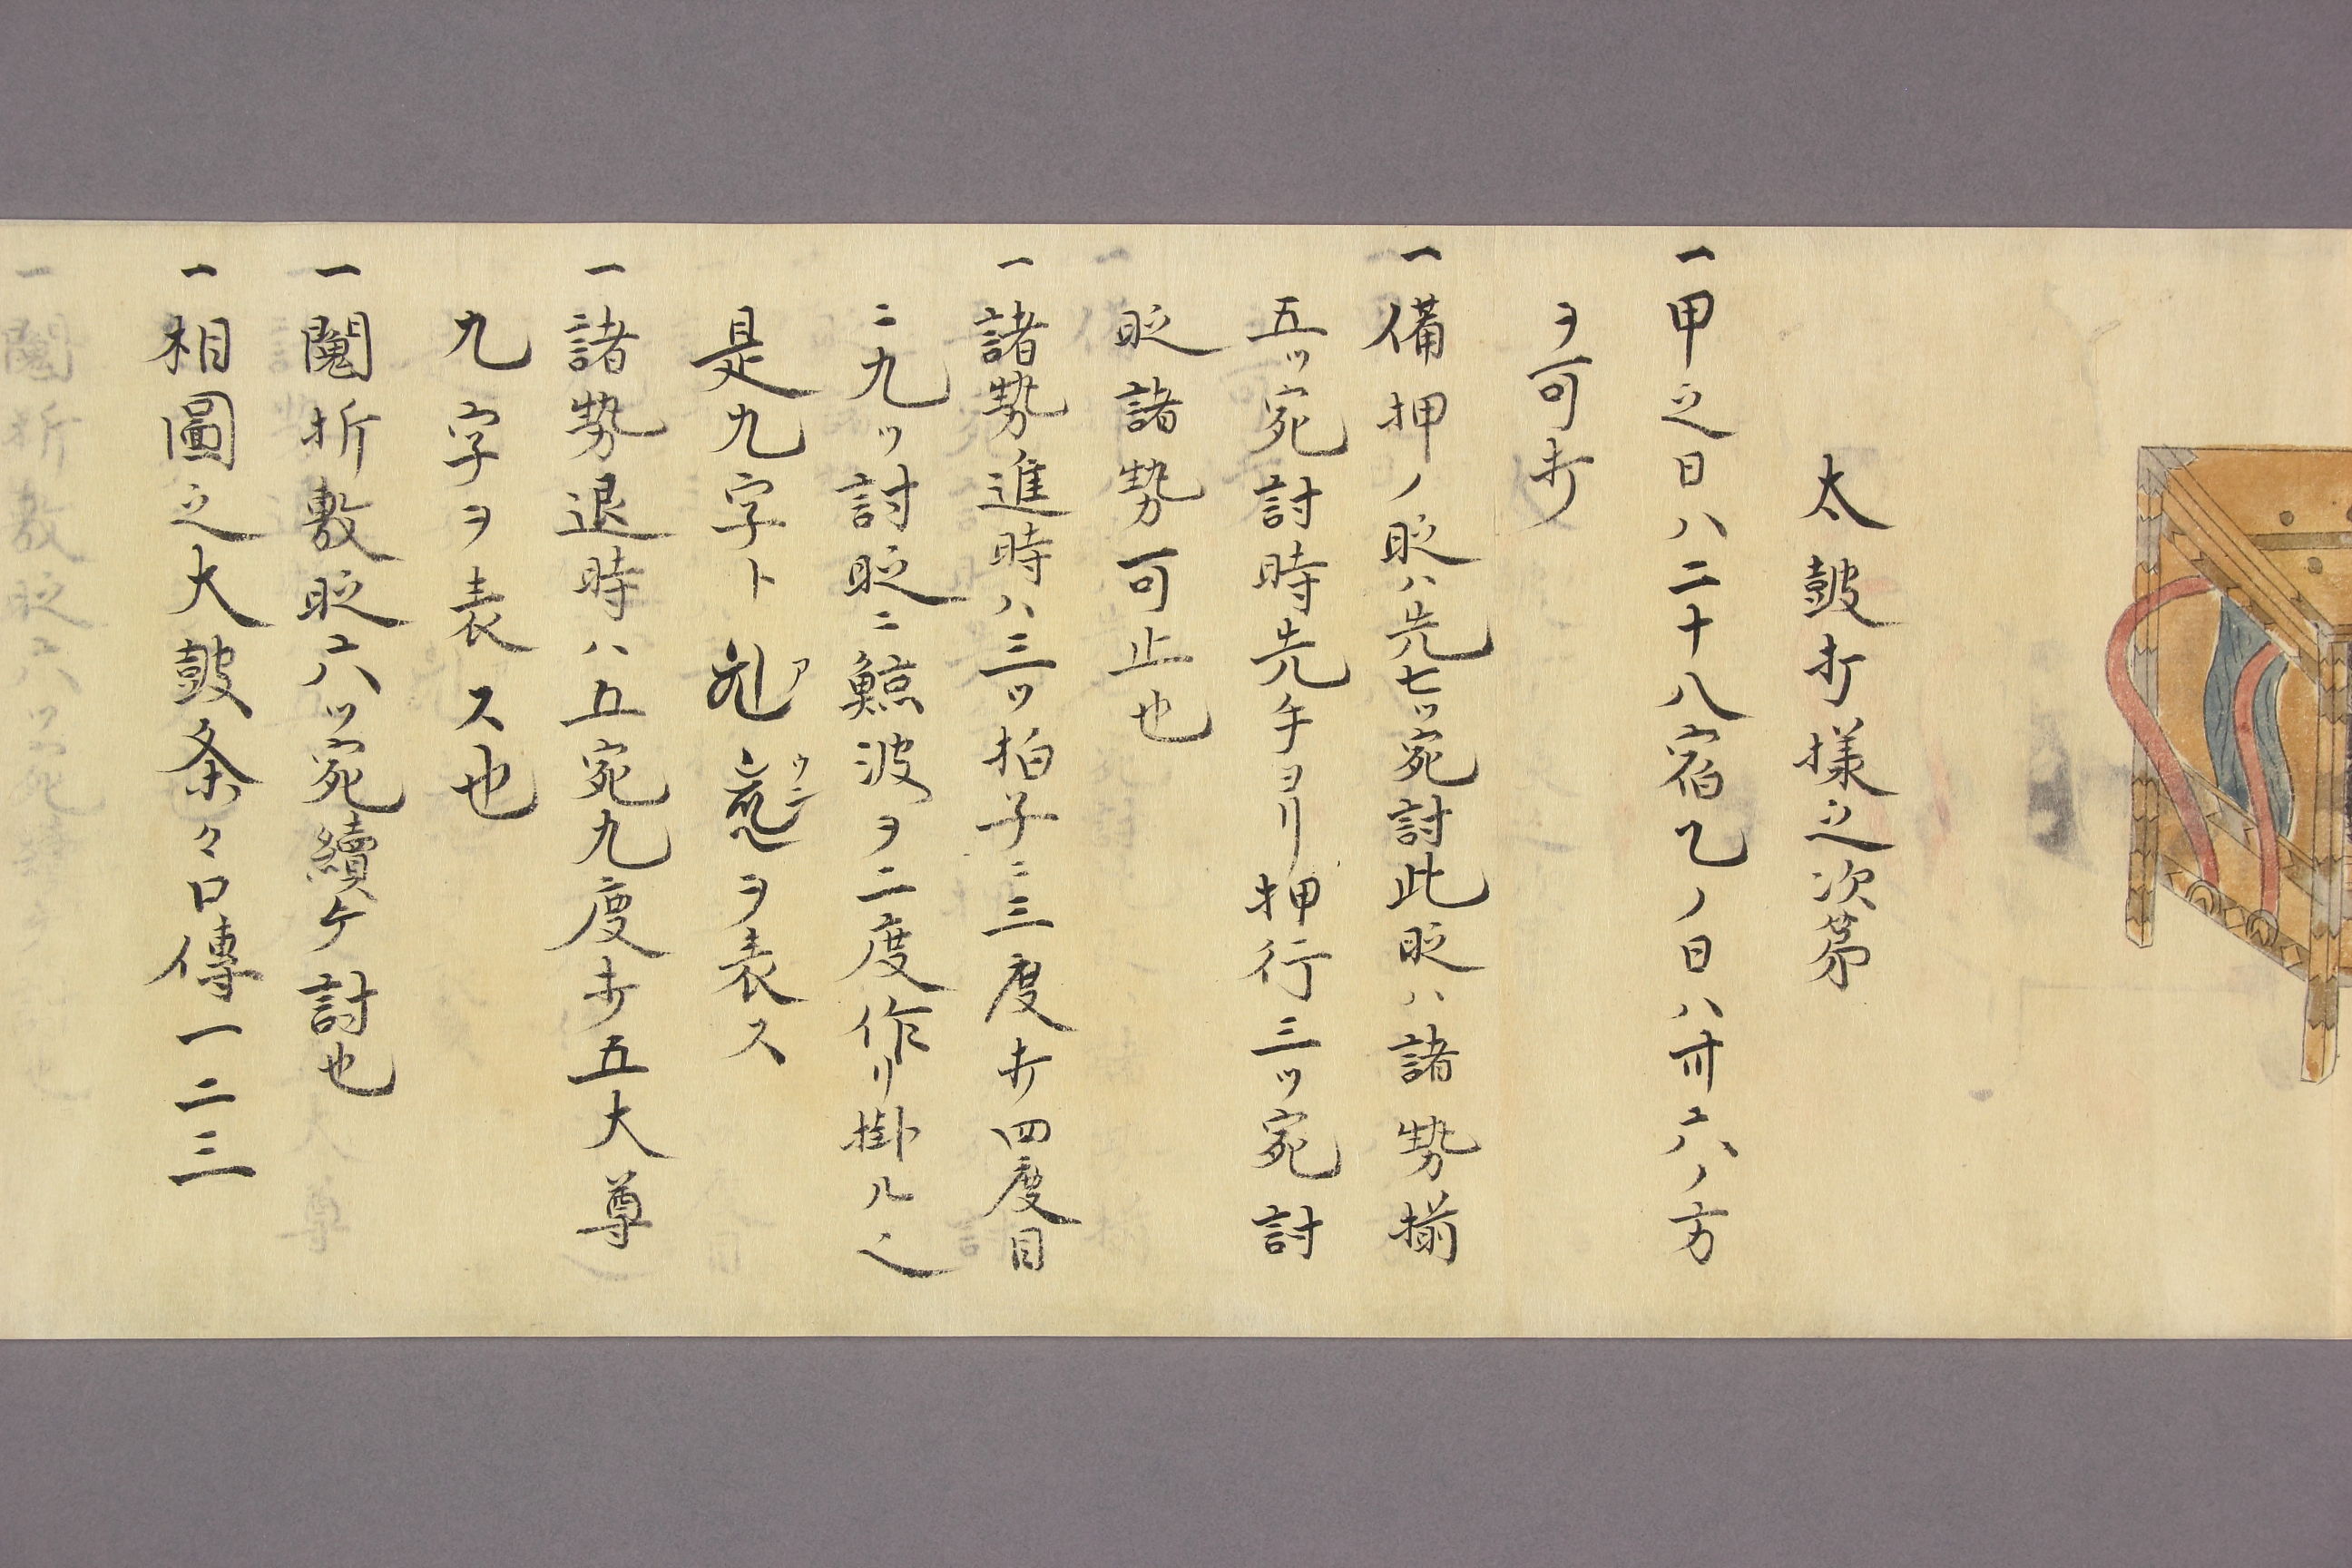 太鼓打様之次第
一甲之日ハ二十八宿乙ノ日ハ卅六ノ方
ヲ可打
一備押ノ時ハ先七ツ宛討此時ハ諸勢揃
五ツ宛討時先手ヨリ押行三ツ宛討
時諸勢可止也
一諸勢進時ハ三ツ拍子ニ三度打四度目
ニ九ツ討時ニ鯨波ヲ二度作リ掛ル之
是九字ト ア ウン ヲ表ス
一諸勢退時ハ五宛九度打五大尊
九字ヲ表ス也
一鬮折敷時六ツ宛續ケ討也
一相圖之大鼓条々口傳一二三